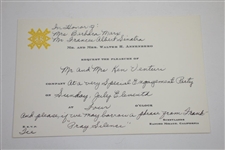 In honor of
Mrs. Barbara Marx
Mr. Francis Albert Sinatra
Mr. and Mrs. Walter H. Annenberg
request the pleasure of
Mr. and Mrs. Ken Venturi
At a very Special Engagement Party
on Sunday, July Eleventh
at Four o'clock
And please, if we may have a phrase from Frank
"Pray Silence"
R.S.V.P.